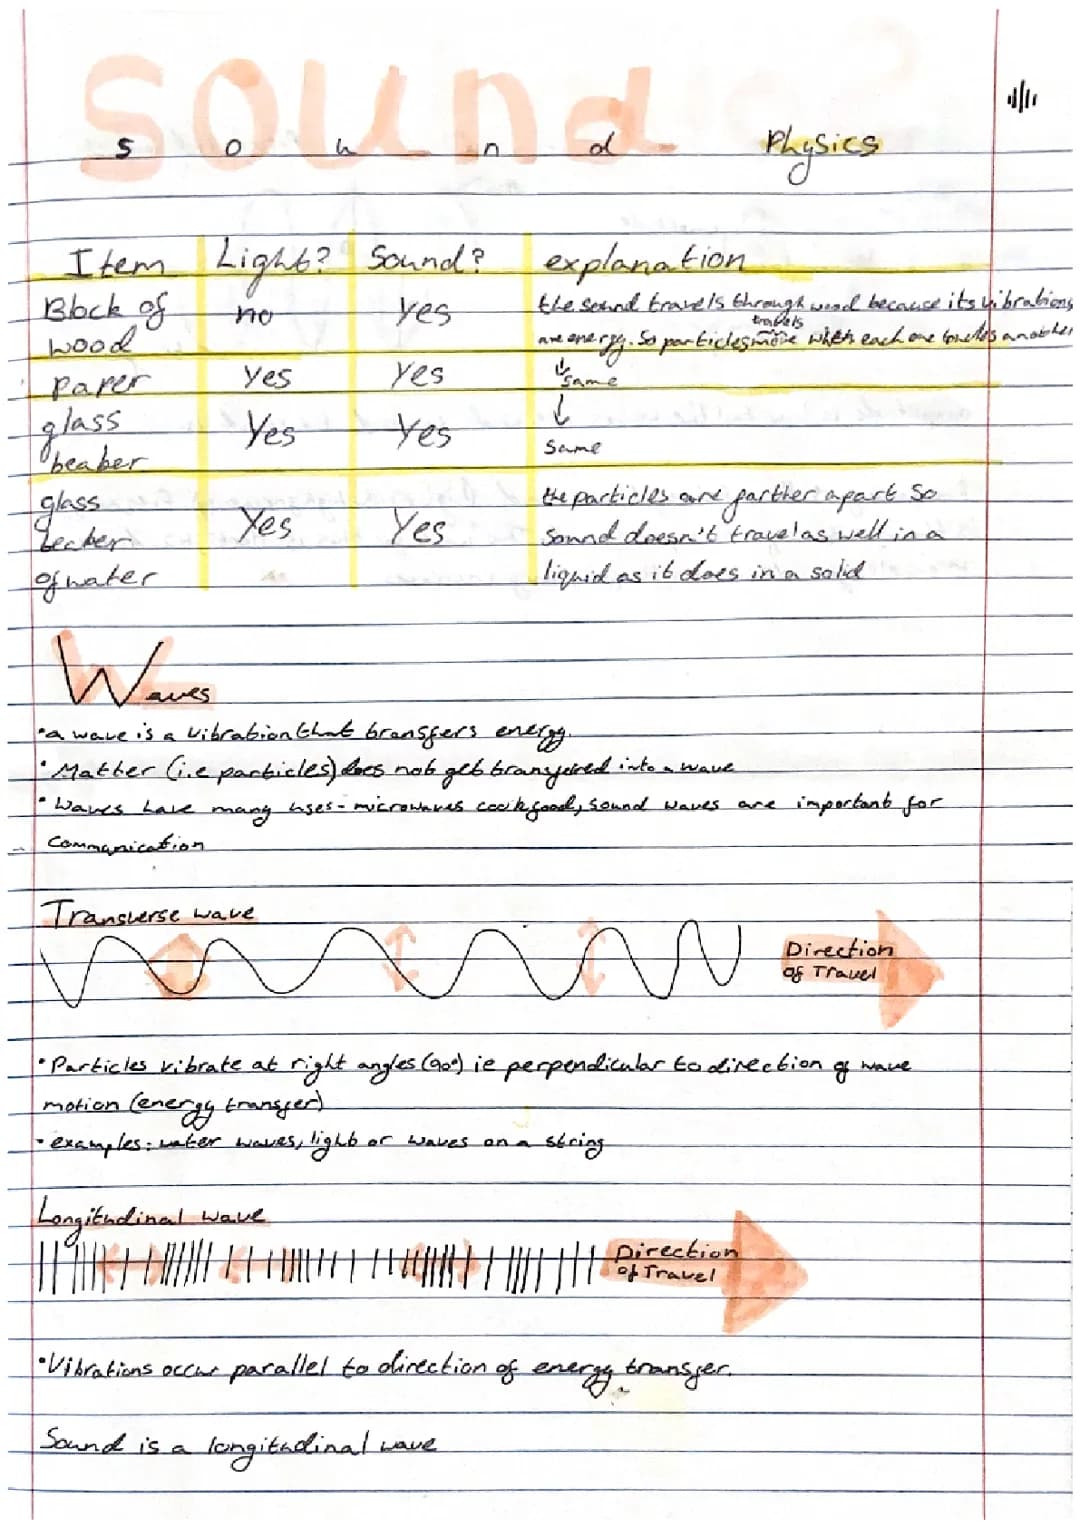 Sound
s o u n d Physics
Item Light? Sound? explanation
Block of wood no yes the sound travels through wood because its vibrations
are energy. So particles move travels when each one touches another
paper yes yes ↓ same
glass beaber Yes Yes ↓ same
glass beaker of water Yes Yes the particles are farther apart so
sound doesn't travel as well in a
liquid as it does in a solid
Waves
• a wave is a vibration that transfers energy.
• Matter (i.e particles) does not get transfered into a wave
• Waves have many uses - microwaves cook food, sound waves are important for
communication
Transverse wave
Direction
of Travel
• Particles vibrate at right angles (90°) ie perpendicular to direction of wave
motion (energy transfer)
• examples: water waves, light or waves on a string
Longitudinal wave
Direction
of Travel
• Vibrations occur parallel to direction of energy transfer.
Sound is a longitudinal wave